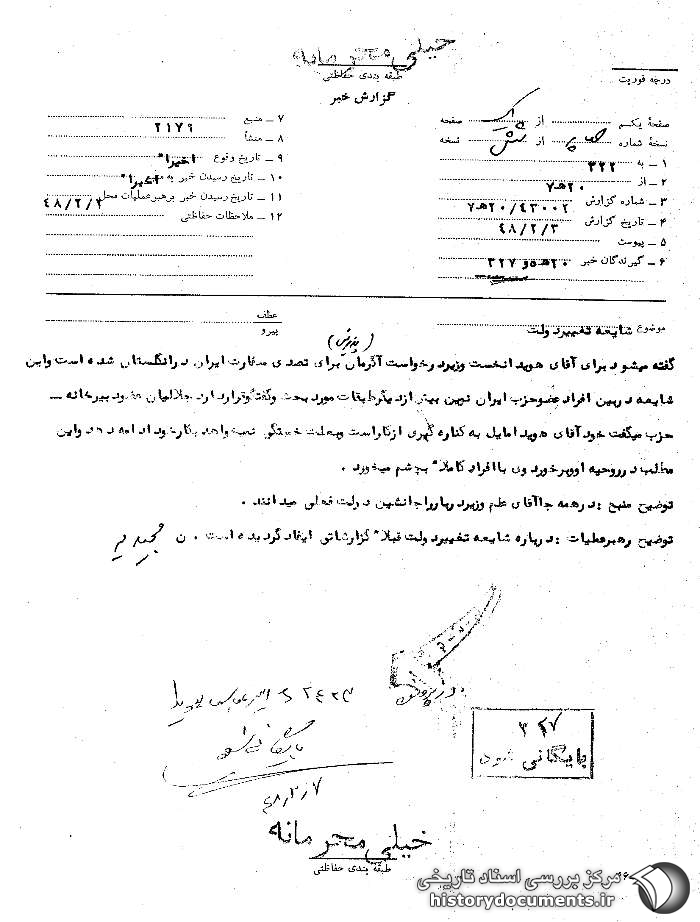 خیلی محرمانه
طبقه بندی حفاظتی
گزارش خبر
درجه فوریت
صفحه یکم از یک صفحه
نسخه شماره از شش نسخه
۱ – به ۳۲۲
۲ – از ۲۰ه۷
۳ – شماره گزارش ۲۰/۴۳۰۰۲ه۷
۴ – تاریخ گزارش ۴۸/۲/۳
۵ – پیوست
۶ – گیرندگان خبر
۷ – منبع ۲۱۷۹
۸ – منشأ
۹ – تاریخ وقوع اخیرا"
۱۰ – تاریخ رسیدن خبر به منبع اخیرا"
۱۱ – تاریخ رسیدن خبر برهبر عملیات محل ۴۸/۲/۲
۱۲ – ملاحظات حفاظتی
موضوع شایعه تغییر دولت
عطف
پیرو
گفته میشود برای آقای هویدا نخست وزیر درخواست آگرمان برای تصدی سفارت ایران در انگلستان شده است و این
شایعه در بین افراد عضو حزب ایران نوین بیش از دیگر طبقات مورد بحث و گفتگو قرار دارد جلالیان عضو دبیرخانه –
حزب میگفت خود آقای هویدا مایل به کناره گیری از کار است و بعلت خستگی نمیخواهد بکار خود ادامه دهد و این
مطلب در روحیه او و برخورد وی با افراد کاملا" بچشم میخورد .
توضیح منبع : در همه جا آقای علم وزیر دربار را جانشین دولت فعلی میدانند .
توضیح رهبر عملیات : درباره شایعه تغییر دولت قبلا" گزارشاتی ایفاد گردیده است . ن
در پرونده
بایگانی شود
۴۸/۲/۷
۳۲۷
بایگانی شود
خیلی محرمانه
طبقه بندی حفاظتی
مرکز بررسی اسناد تاریخی
historydocuments.ir